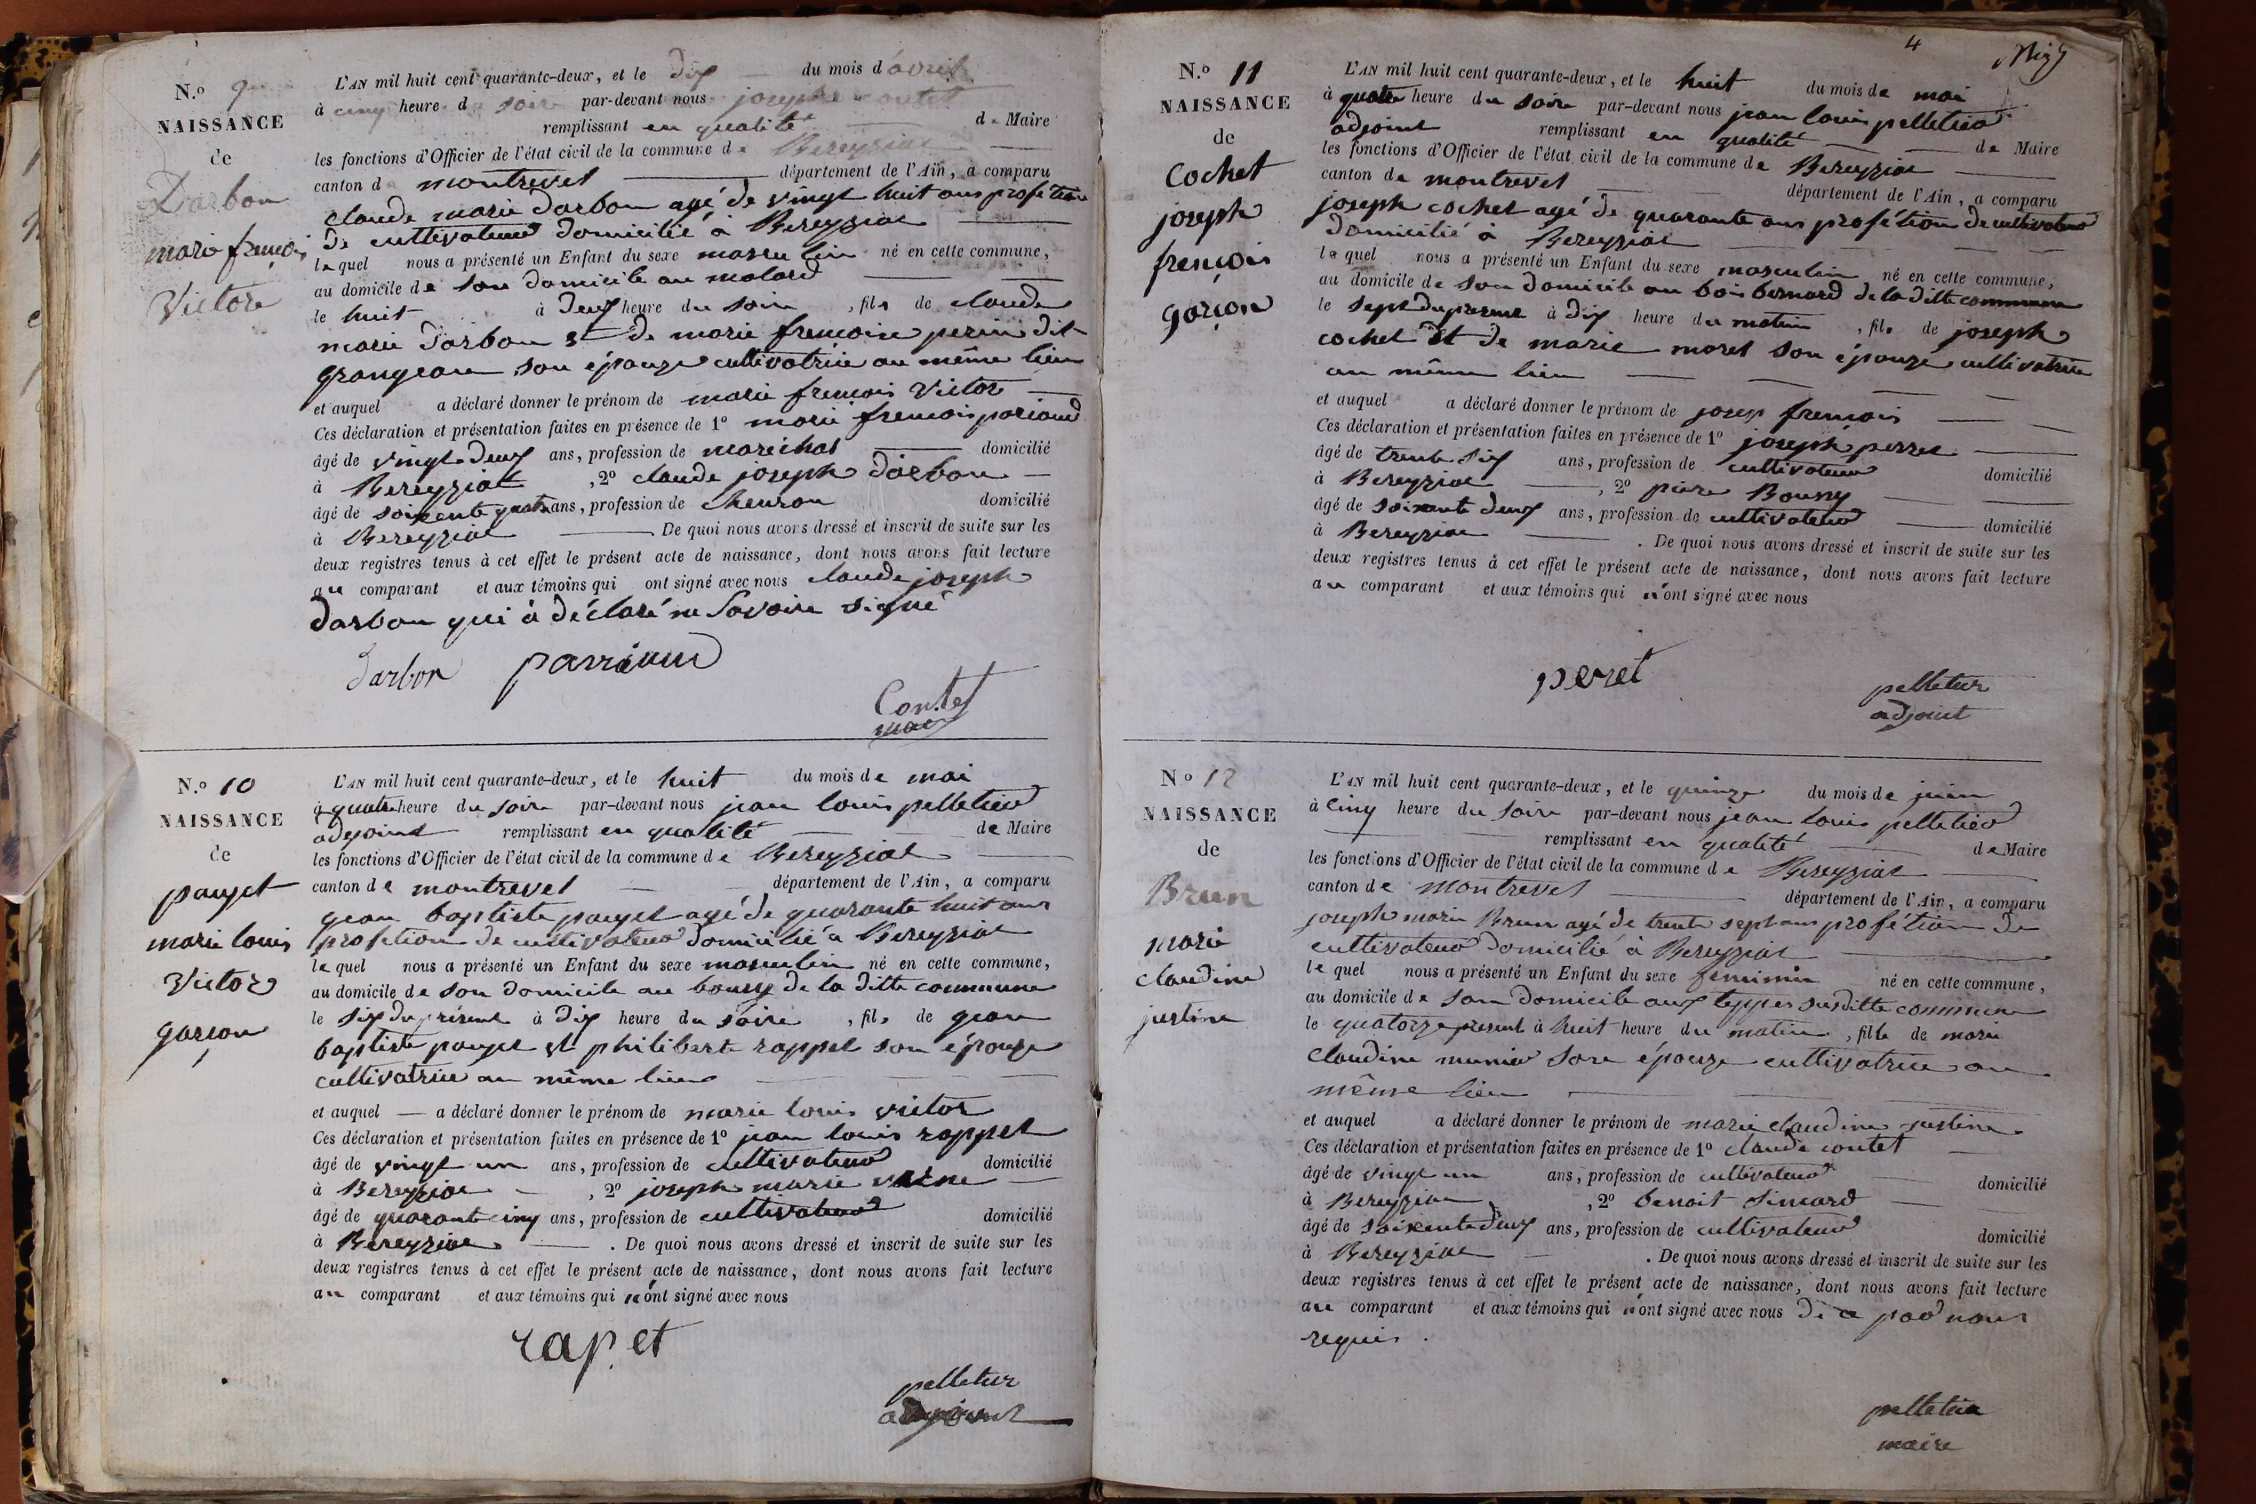 N.o 9
NAISSANCE
de
Darbon
marie francois
Victor
L'AN mil huit cent quarante-deux, et le dix du mois d'avril
à cinq heure du soir par-devant nous joseph contet
remplissant en qualité de Maire
les fonctions d'Officier de l'état civil de la commune de Bereyziat
canton de montrevel département de l'Ain, a comparu
claude marie darbon agé de vingt huit ans profétion
de cultivateur domicilié à Bereyziat
lequel nous a présenté un Enfant du sexe masculin né en cette commune,
au domicile de son domicile au molard
le huit à deux heure du soir, fils de claude
marie darbon et de marie francoise perrin dit
grangeon son épouze cultivatrice au même lieu
et auquel a déclaré donner le prénom de marie francois victor
Ces déclaration et présentation faites en présence de 1o marie francois pariaud
âgé de vingt deux ans, profession de maréchal domicilié
à Bereyziat, 2o claude joseph darbon
âgé de soixente quatre ans, profession de domicilié
à Bereyziat De quoi nous avons dressé et inscrit de suite sur les
deux registres tenus à cet effet le présent acte de naissance, dont nous avons fait lecture
au comparant et aux témoins qui ont signé avec nous claude joseph
darbon qui à déclaré ne savoir signé
darbon parriaud
Contet
maire
N.o 10
NAISSANCE
de
pauget
marie louis
Victor
garçon
L'AN mil huit cent quarante-deux, et le huit du mois de mai
à quatre heure du soir par-devant nous jean louis pelletier
adjoint remplissant en qualité de Maire
les fonctions d'Officier de l'état civil de la commune de Bereyziat
canton de montrevel département de l'Ain, a comparu
jean baptiste pauget agé de quarante huit ans
profétion de cultivateur domicilié a Bereyziat
lequel nous a présenté un Enfant du sexe masculin né en cette commune,
au domicile de son domicile au bourg de la ditte commune
le six du présent à dix heure du soire, fils de jean
baptiste pauget et philiberte rappet son épouze
cultivatrice au même lieu
et auquel a déclaré donner le prénom de marie louis victor
Ces déclaration et présentation faites en présence de 1o jean louis rappet
âgé de vingt un ans, profession de cultivateur domicilié
à Bereyziat, 2o joseph marie
âgé de quarante cinq ans, profession de cultivateur domicilié
à Bereyziat. De quoi nous avons dressé et inscrit de suite sur les
deux registres tenus à cet effet le présent acte de naissance, dont nous avons fait lecture
au comparant et aux témoins qui n'ont signé avec nous
rapet
pelletier
adjoint
4
N.o 11
NAISSANCE
de
Cochet
joseph
francois
garçon
L'AN mil huit cent quarante-deux, et le huit du mois de mai
à quatre heure du soire par-devant nous jean louis pelletier
adjoint remplissant en qualité de Maire
les fonctions d'Officier de l'état civil de la commune de Bereyziat
canton de montrevel département de l'Ain, a comparu
joseph cochet agé de quarante ans profétion de cultivateur
domicilié à Bereyziat
lequel nous a présenté un Enfant du sexe masculin né en cette commune,
au domicile de son domicile au bois bernard de la ditte commune
le sept du present à dix heure du matin, fils de joseph
cochet et de marie morel son épouze cultivatrice
au même lieu
et auquel a déclaré donner le prénom de josep francois
Ces déclaration et présentation faites en présence de 1o joseph perret
âgé de trente six ans, profession de cultivateur domicilié
à Bereyziat, 2o piere Bouvry
âgé de soixante deux ans, profession de cultivateur domicilié
à Bereyziat. De quoi nous avons dressé et inscrit de suite sur les
deux registres tenus à cet effet le présent acte de naissance, dont nous avons fait lecture
au comparant et aux témoins qui n'ont signé avec nous
peret
pelletier
adjoint
No 12
NAISSANCE
de
Brun
marie
claudine
justine
L'AN mil huit cent quarante-deux, et le quinze du mois de juin
à cinq heure du soire par-devant nous jean louis pelletier
remplissant en qualité de Maire
les fonctions d'Officier de l'état civil de la commune de Bereyziat
canton de montrevel département de l'Ain, a comparu
joseph marie Brun agé de trente sept ans profétion de
cultivateur domicilié à Bereyziat
lequel nous a présenté un Enfant du sexe feminin né en cette commune,
au domicile de son domicile aux teppes susditte commune
le quatorze présent à huit heure du matin, fille de marie
claudine munier son épouze cultivatrice au
même lieu
et auquel a déclaré donner le prénom de marie claudine justine
Ces déclaration et présentation faites en présence de 1o claude contet
âgé de vingt un ans, profession de cultivateur domicilié
à Bereyziat, 2o benoit simard
âgé de soixente deux ans, profession de cultivateur domicilié
à Bereyziat. De quoi nous avons dressé et inscrit de suite sur les
deux registres tenus à cet effet le présent acte de naissance, dont nous avons fait lecture
au comparant et aux témoins qui n'ont signé avec nous de ce par nous
requis.
pelletier
maire